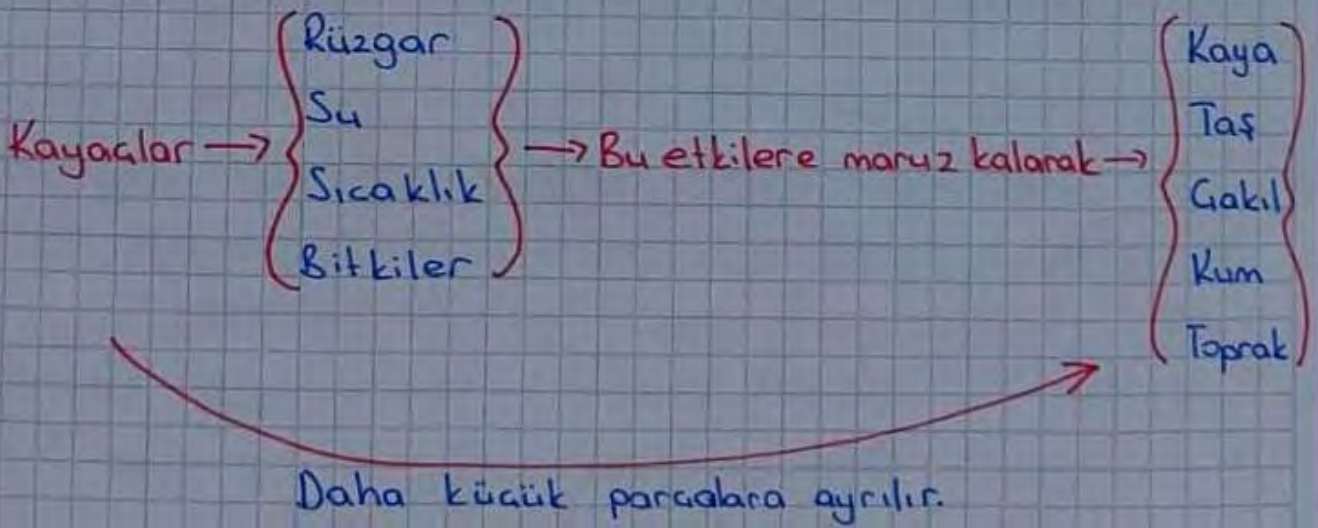 Kayaçlar → Rüzgar
Su
Sıcaklık
Bitkiler
→ Bu etkilere maruz kalarak →
Kaya
Taş
Çakıl
Kum
Toprak
Daha küçük parçalara ayrılır.